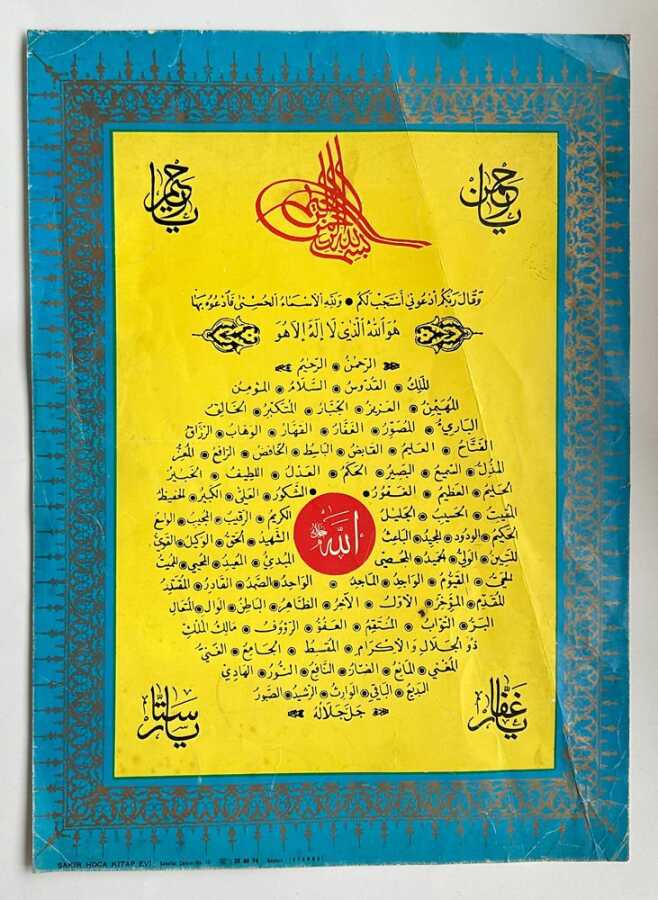 يا رحمن
يا رحيم
بسم الله الرحمن الرحيم
وَقَالَ رَبُّكُمُ ادْعُونِي أَسْتَجِبْ لَكُمْ ● وَلِلَّهِ الْأَسْمَاءُ الْحُسْنَى فَادْعُوهُ بِهَا
هُوَ اللهُ الَّذِي لَا إِلَهَ إِلَّا هُوَ
الرَّحْمٰنُ الرَّحِيمُ
الْمَلِكُ الْقُدُّوسُ السَّلَامُ الْمُؤْمِنُ
الْمُهَيْمِنُ الْعَزِيزُ الْجَبَّارُ الْمُتَكَبِّرُ الْخَالِقُ
الْبَارِئُ الْمُصَوِّرُ الْغَفَّارُ الْقَهَّارُ الْوَهَّابُ الرَّزَّاقُ
الْفَتَّاحُ الْعَلِيمُ الْقَابِضُ الْبَاسِطُ الْخَافِضُ الرَّافِعُ الْمُعِزُّ
الْمُذِلُّ السَّمِيعُ الْبَصِيرُ الْحَكَمُ الْعَدْلُ اللَّطِيفُ الْخَبِيرُ
الْحَلِيمُ الْعَظِيمُ الْغَفُورُ الشَّكُورُ الْعَلِيُّ الْكَبِيرُ الْحَفِيظُ
الْمُقِيتُ الْحَسِيبُ الْجَلِيلُ الْكَرِيمُ الرَّقِيبُ الْمُجِيبُ الْوَاسِعُ
الْحَكِيمُ الْوَدُودُ الْمَجِيدُ الْبَاعِثُ الشَّهِيدُ الْحَقُّ الْوَكِيلُ الْقَوِيُّ
الله جل جلاله
الْمَتِينُ الْوَلِيُّ الْحَمِيدُ الْمُحْصِي الْمُبْدِئُ الْمُعِيدُ الْمُحْيِي الْمُمِيتُ
الْحَيُّ الْقَيُّومُ الْوَاجِدُ الْمَاجِدُ الْوَاحِدُ الصَّمَدُ الْقَادِرُ الْمُقْتَدِرُ
الْمُقَدِّمُ الْمُؤَخِّرُ الْأَوَّلُ الْآخِرُ الظَّاهِرُ الْبَاطِنُ الْوَالِي الْمُتَعَالِ
الْبَرُّ التَّوَّابُ الْمُنْتَقِمُ الْعَفُوُّ الرَّؤُوفُ مَالِكُ الْمُلْكِ
ذُو الْجَلَالِ وَالْإِكْرَامِ الْمُقْسِطُ الْجَامِعُ الْغَنِيُّ
الْمُغْنِي الْمَانِعُ الضَّارُّ النَّافِعُ النُّورُ الْهَادِي
الْبَدِيعُ الْبَاقِي الْوَارِثُ الرَّشِيدُ الصَّبُورُ
جَلَّ جَلَالُهُ
يا غفار
يا ستار
ŞAKİR HOCA KİTAP EVİ